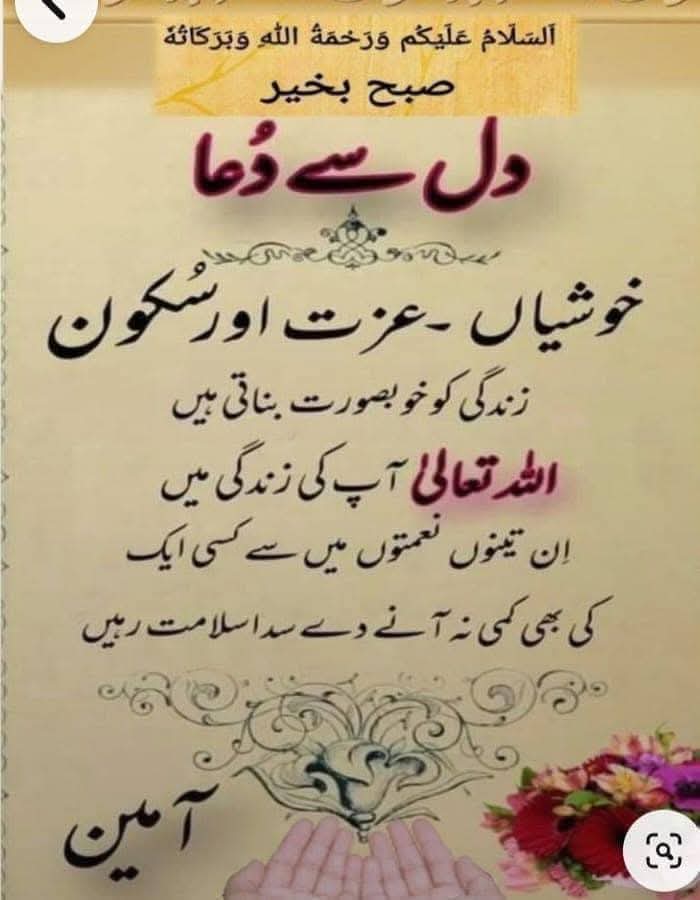 اَلسَّلَامُ عَلَيْكُم وَرَحْمَةُ اللهِ وَبَرَكَاتُهٗ
صبح بخیر
دل سے دُعا
خوشیاں ۔عزت اور سُکون
زندگی کو خوبصورت بناتی ہیں
اللہ تعالیٰ آپ کی زندگی میں
اِن تینوں نعمتوں میں سے کسی ایک
کی بھی کمی نہ آنے دے سدا سلامت رہیں
آمین